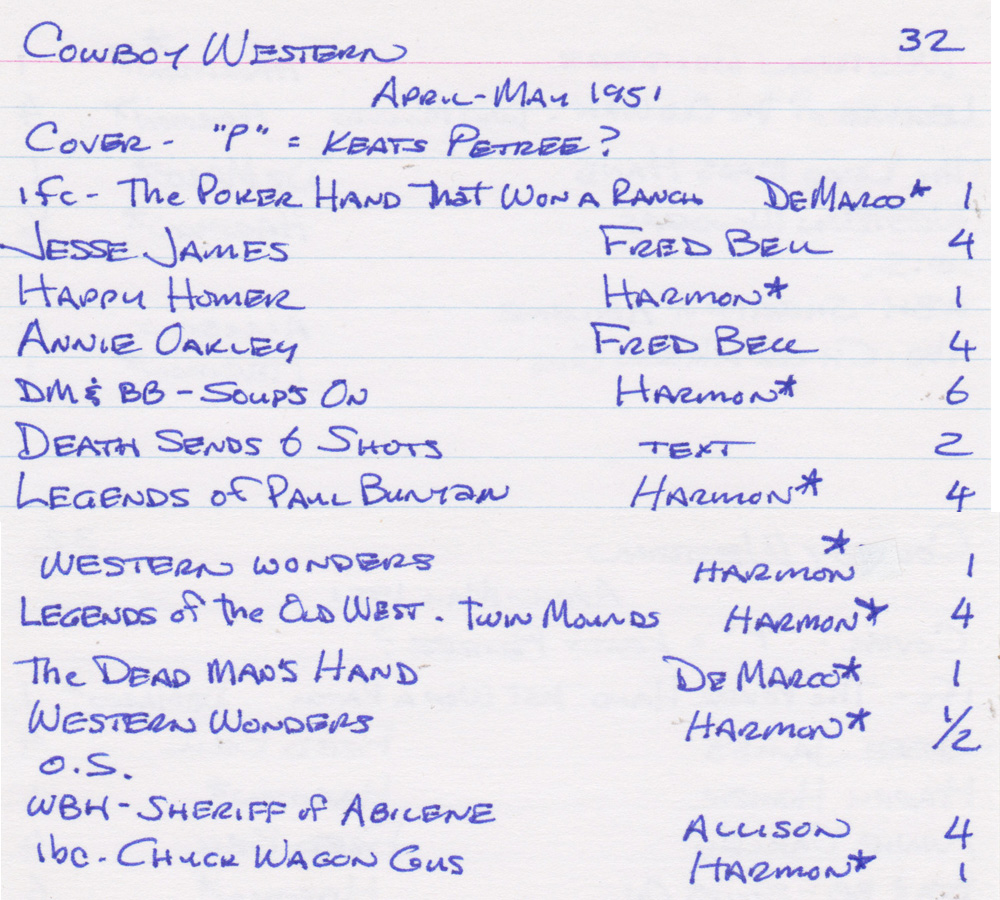 COWBOY WESTERN 32
APRIL-MAY 1951
COVER - "P" = KEATS PETREE?
ifc - The POKER HAND That WON A RANCH DEMARCO* 1
JESSE JAMES FRED BELL 4
HAPPY HOMER HARMON* 1
ANNIE OAKLEY FRED BELL 4
DM & BB - SOUP'S ON HARMON* 6
DEATH SENDS 6 SHOTS TEXT 2
LEGENDS of PAUL BUNYAN HARMON* 4
WESTERN WONDERS HARMON* 1
LEGENDS of the OLD WEST. TWIN MOUNDS HARMON* 4
The DEAD MAN'S HAND DE MARCO* 1
WESTERN WONDERS HARMON* 1/2
O.S.
WBH - SHERIFF of ABILENE ALLISON 4
ibc - CHUCK WAGON GUS HARMON* 1